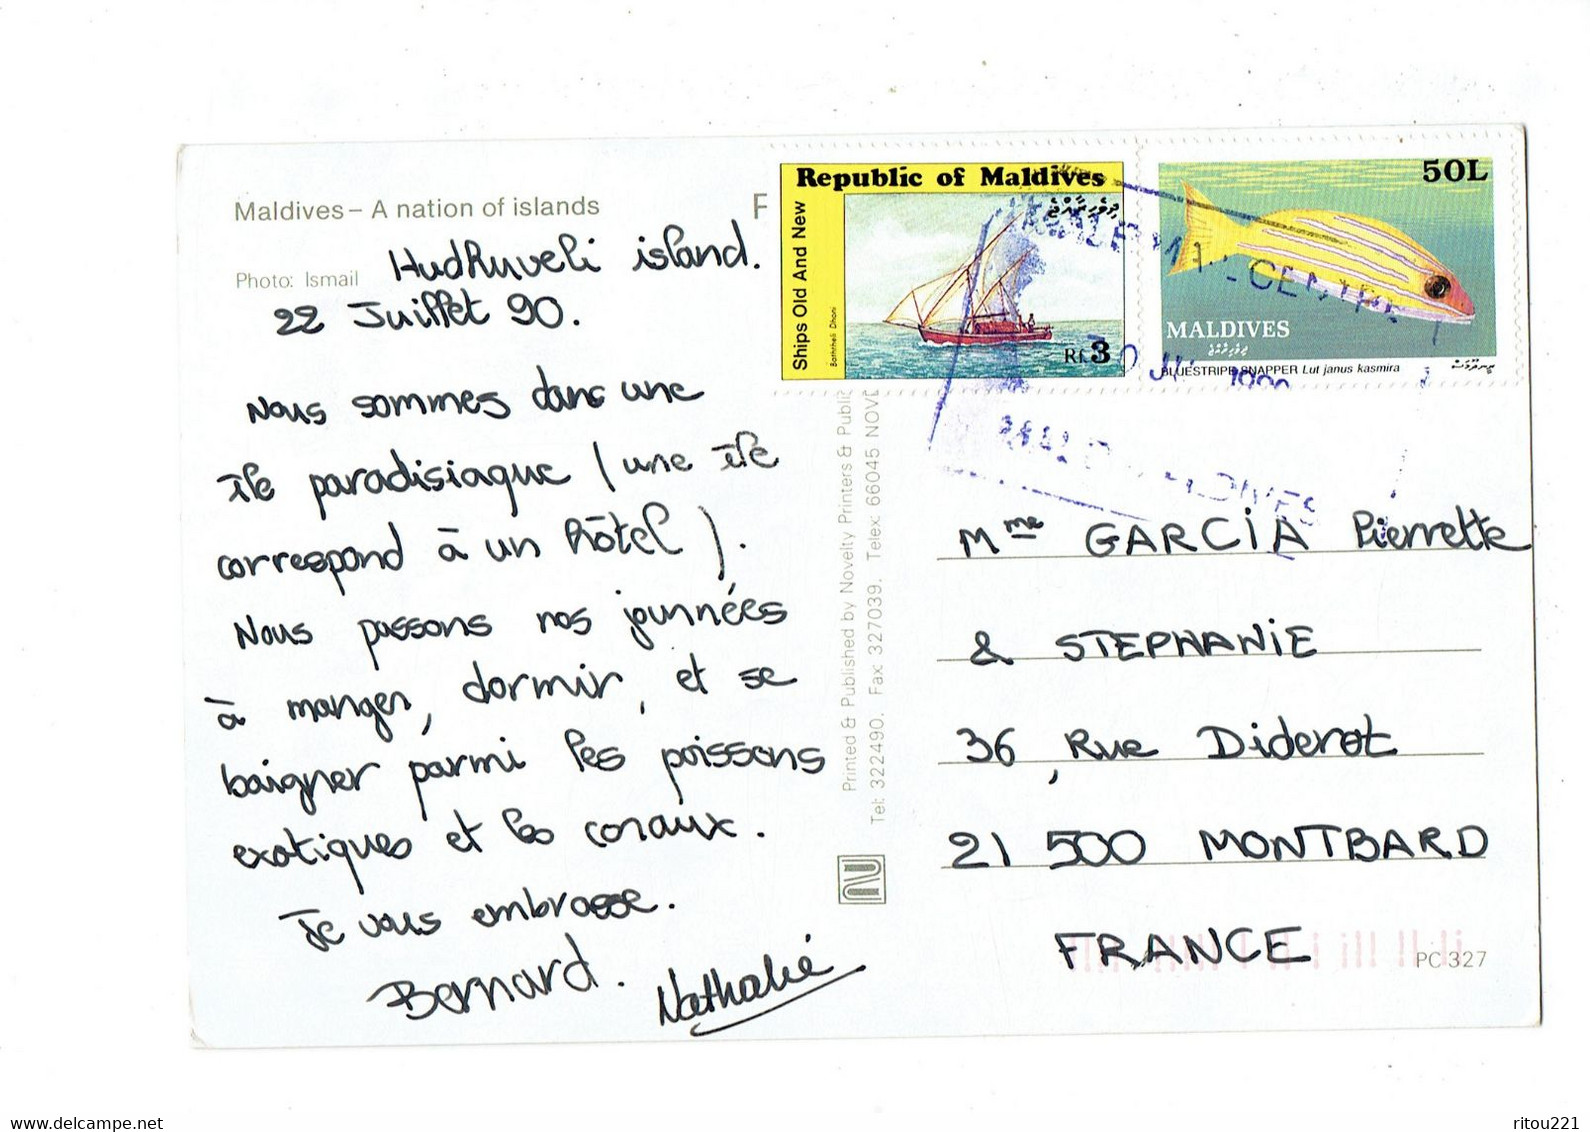 Maldives – A nation of islands
Photo: Ismail
Hudhuveli island.
22 Juillet 90.
Nous sommes dans une
île paradisiaque (une île
correspond à un hôtel).
Nous passons nos journées
à manger, dormir, et se
baigner parmi les poissons
exotiques et les coraux.
Je vous embrasse.
Bernard.
Nathalie
Printed & Published by Novelty Printers & Publi
Tel: 322490. Fax: 327039. Telex: 66045 NOV
Republic of Maldives
Ships Old And New
Rf. 3
50L
MALDIVES
ދިވެހިރާއްޖެ
BLUESTRIPE SNAPPER Lut janus kasmira
Mme GARCIA Pierrette
& STEPHANIE
36, Rue Diderot
21 500 MONTBARD
FRANCE
PC 327
www.delcampe.net
ritou221